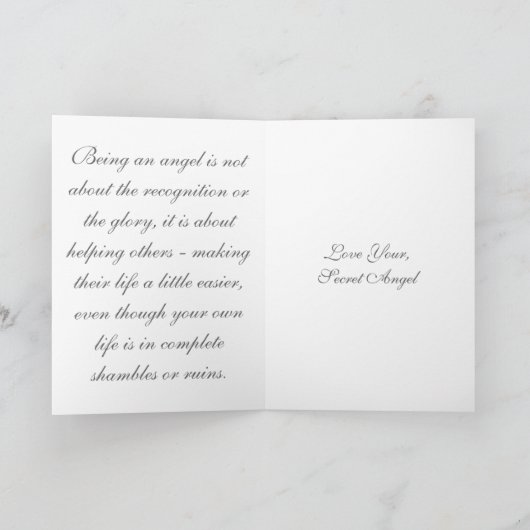 Being an angel is not
about the recognition or
the glory, it is about
helping others - making
their life a little easier,
even though your own
life is in complete
shambles or ruins.
Love Your,
Secret Angel